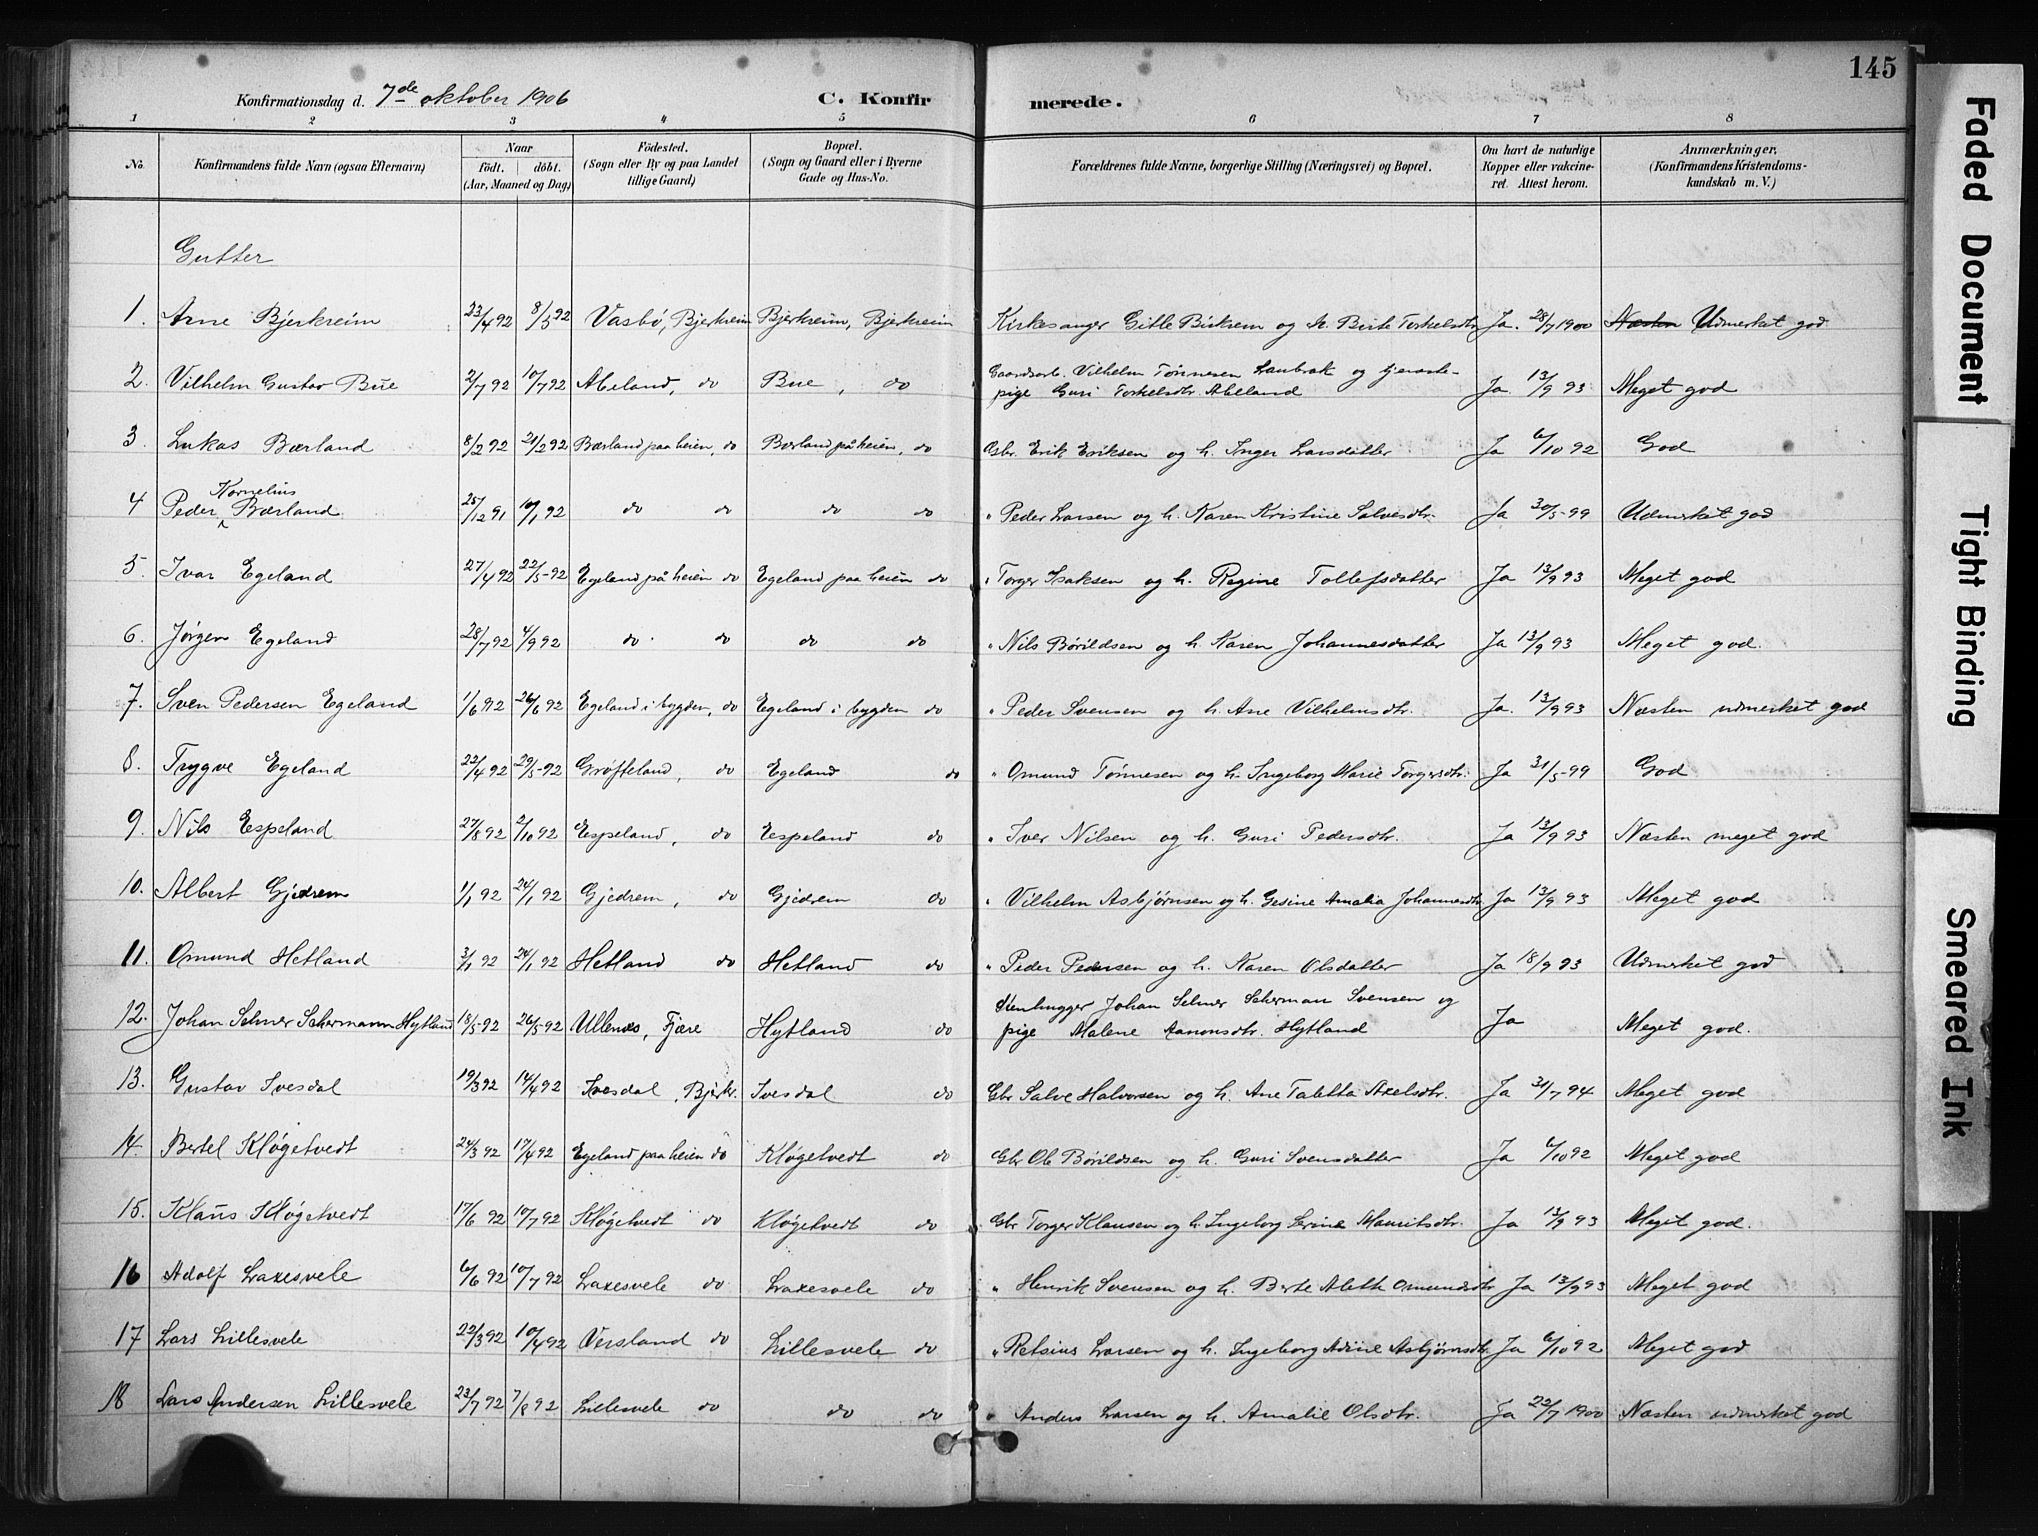 Konfirmationsdag d. 7de oktober 1906 C. Konfirmerede. 145
1 2 3 4 5 6 7 8
No. Konfirmandens fulde Navn (ogsaa Efternavn) Naar Födt. döbt. (Aar, Maaned og Dag) Födested. (Sogn eller By og paa Landet tillige Gaard) Bopæl. (Sogn og Gaard eller i Byerne Gade og Hus-No. Forældrenes fulde Navne, borgerlige Stilling (Næringsvei) og Bopæl. Om havt de naturlige Kopper eller vakcineret. Attest herom. Anmærkninger, (Konfirmandens Kristendomskundskab m. V.)
Gutter
1. Arne Bjerkreim 23/4 92 8/5 92 Vasbø, Bjerkreim Bjerkreim, Bjerkreim Kirkesanger Gitle Birkrem og h. Berte Torkelsdtr Ja. 28/7 1900 Næsten Udmerket god
2. Vilhelm Gustav Bue 2/7 92 10/7 92 Abeland, do Bue, do Gaardsarb. Vilhelm Tønnesen Laubrak og tjeneste-
pige Guri Torkelsdtr. Abeland Ja. 13/9 93 Meget god
3. Lukas Bærland 8/2 92 21/2 92 Bærland paa heien, do Bærland på heien, do Gbr. Erik Eriksen og h. Inger Larsdatter Ja 6/10 92 God
4 Peder Kornelius Bærland 25/12 91 10/1 92 do do do do " Peder Larsen og h. Karen Kristine Salvesdtr. Ja 30/5-99 Udmerket god
5. Ivar Egeland 27/4 92 22/5-92 Egeland på heien do Egeland paa heien do " Torger Isaksen og h. Regine Tollefsdatter Ja 13/9 93 Meget god
6. Jørgen Egeland 28/7 92 4/9 92 do do do do " Nils Børildsen og h. Karen Johannesdatter Ja 13/9 93 Meget god.
7. Sven Pedersen Egeland 1/6 92 26/6 92 Egeland i bygden, do Egeland i bygden do " Peder Svensen og h. Ane Vilhelmsdtr. Ja. 13/9 93 Næsten udmerket god
8. Trygve Egeland 22/4 92 29/5-92 Grøfteland, do Egeland do " Omund Tønnesen og h. Ingeborg Marie Torgersdtr. Ja 31/5-99 God
9. Nils Espeland 27/8 92 2/10 92 Espeland, do Espeland do " Iver Nilsen og h. Guri Pedersdtr. Ja 13/9 93 Næsten meget god
10. Albert Gjedrem 1/1 92 24/1 92 Gjedrem, do Gjedrem do " Vilhelm Asbjørnsen og h. Gesine Amalia Johannesdtr. Ja 13/9 93 Meget god
11. Omund Hetland 3/1 92 24/1 92 Hetland do Hetland do " Peder Pedersen og h. Karen Olsdatter Ja 18/9 93 Udmerket god
12. Johan Selmer Schermann Hytland 18/5-92 26/5-92 Ullenes, Fjære Hytland do Stenhugger Johan Selmer Scherman Svensen og
pige Malene Aanonsdtr. Hytland Ja Meget god.
13. Gustav Ivesdal 19/3 92 14/4 92 Ivesdal, Bjerkr. Ivesdal do Gbr Salve Halvorsen og h. Ane Taletta Axelsdtr. Ja 31/7 94 Meget god
14. Bertel Kløgetvedt 24/3 92 17/4 92 Egeland paa heien do Kløgetvedt do Gbr Ole Børildsen og h. Guri Svensdatter Ja 6/10 92 Meget god
15. Klaus Kløgetvedt 17/6 92 10/7 92 Kløgetvedt do Kløgetvedt do Gbr Torger Klausen og h. Ingeborg Serine Mauritsdtr. Ja 13/9 93 Meget god.
16 Adolf Laxesvele 6/6 92 10/7 92 Laxesvele do Laxesvele do " Henrik Svensen og h. Berte Aleth Omundsdtr Ja 13/9 93 Meget god
17 Lars Lillesvele 22/3 92 10/4 92 Versland do Lillesvele do " Retsius Larsen og h. Ingeborg Adine Asbjørnsdtr. Ja 6/10 92 Meget god
18 Lars Andersen Lillesvele 23/7 92 7/8 92 Lillesvele do do do " Anders Larsen og h. Amalie Olsdtr. Ja 23/7 1900 Næsten udmerket god
Faded Document
Tight Binding
Smeared Ink